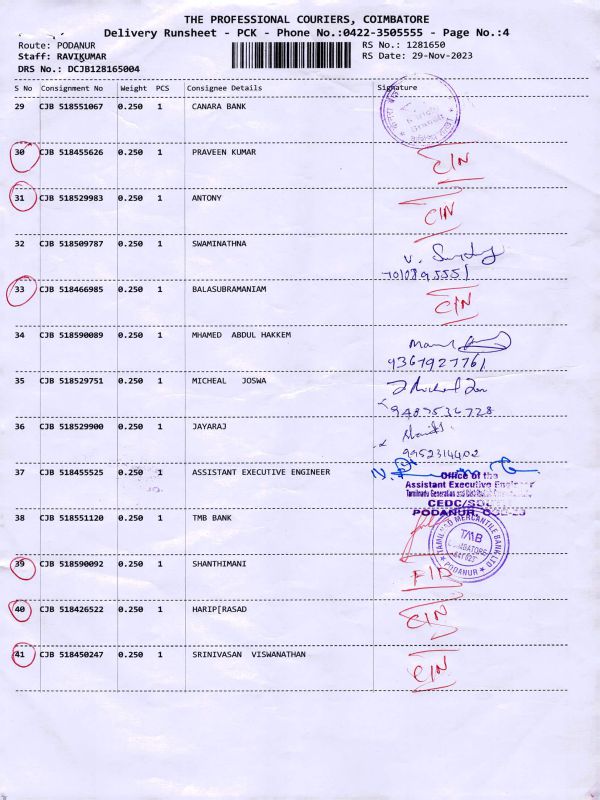 THE PROFESSIONAL COURIERS, COIMBATORE
Delivery Runsheet - PCK - Phone No.:0422-3505555 - Page No.:4
Route: PODANUR RS No.: 1281650
Staff: RAVIKUMAR RS Date: 29-Nov-2023
DRS No.: DCJB128165004
S No Consignment No Weight PCS Consignee Details Signature
29 CJB 518551067 0.250 1 CANARA BANK
30 CJB 518455626 0.250 1 PRAVEEN KUMAR CIN
31 CJB 518529983 0.250 1 ANTONY CIN
32 CJB 518509787 0.250 1 SWAMINATHNA
7010895551
33 CJB 518466985 0.250 1 BALASUBRAMANIAM CIN
34 CJB 518590089 0.250 1 MHAMED ABDUL HAKKEM
9367927761
35 CJB 518529751 0.250 1 MICHEAL JOSWA
9487534728
36 CJB 518529900 0.250 1 JAYARAJ
9952314402
37 CJB 518455525 0.250 1 ASSISTANT EXECUTIVE ENGINEER
Office of the
Assistant Executive Engineer
Tamilnadu Generation and Distribution
CEDC/SOUTH
PODANUR, CBE-23
38 CJB 518551120 0.250 1 TMB BANK
TAMILNAD MERCANTILE BANK LTD
TMB
COIMBATORE
641023
PODANUR
39 CJB 518590092 0.250 1 SHANTHIMANI
40 CJB 518426522 0.250 1 HARIP[RASAD CIN
41 CJB 518450247 0.250 1 SRINIVASAN VISWANATHAN CIN